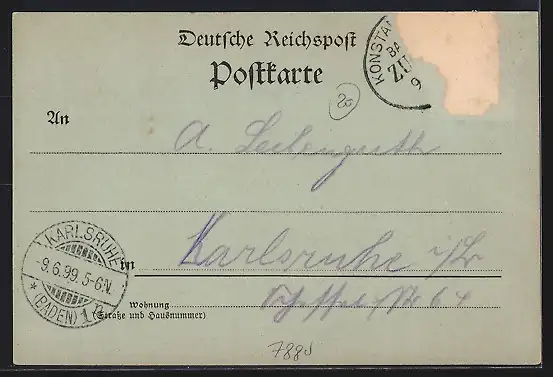 Deutsche Reichspost
Postkarte
KONSTAN
BA
ZU
9
20
An
A.
Karlsruhe i/B
KARLSRUHE
-9.6.99.5-6N.
* (BADEN) 1
in
No 64
Wohnung
(Straße und Hausnummer)